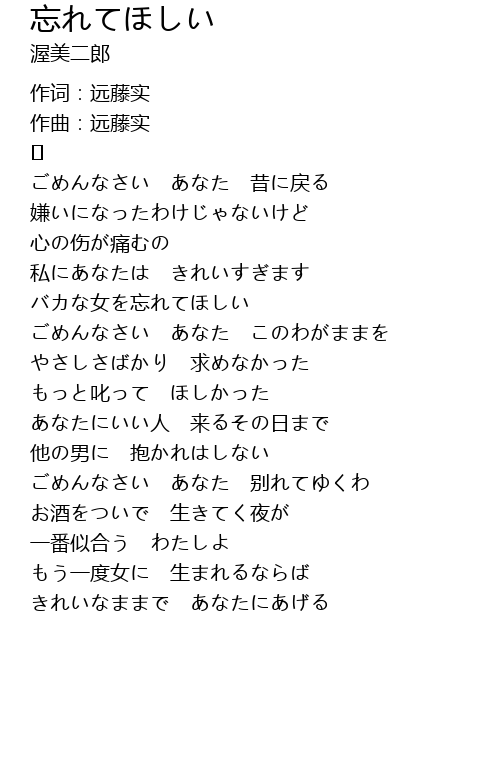 忘れてほしい
渥美二郎
作词：远藤实
作曲：远藤实
[]
ごめんなさい　あなた　昔に戻る
嫌いになったわけじゃないけど
心の伤が痛むの
私にあなたは　きれいすぎます
バカな女を忘れてほしい
ごめんなさい　あなた　このわがままを
やさしさばかり　求めなかった
もっと叱って　ほしかった
あなたにいい人　来るその日まで
他の男に　抱かれはしない
ごめんなさい　あなた　别れてゆくわ
お酒をついで　生きてく夜が
一番似合う　わたしよ
もう一度女に　生まれるならば
きれいなままで　あなたにあげる